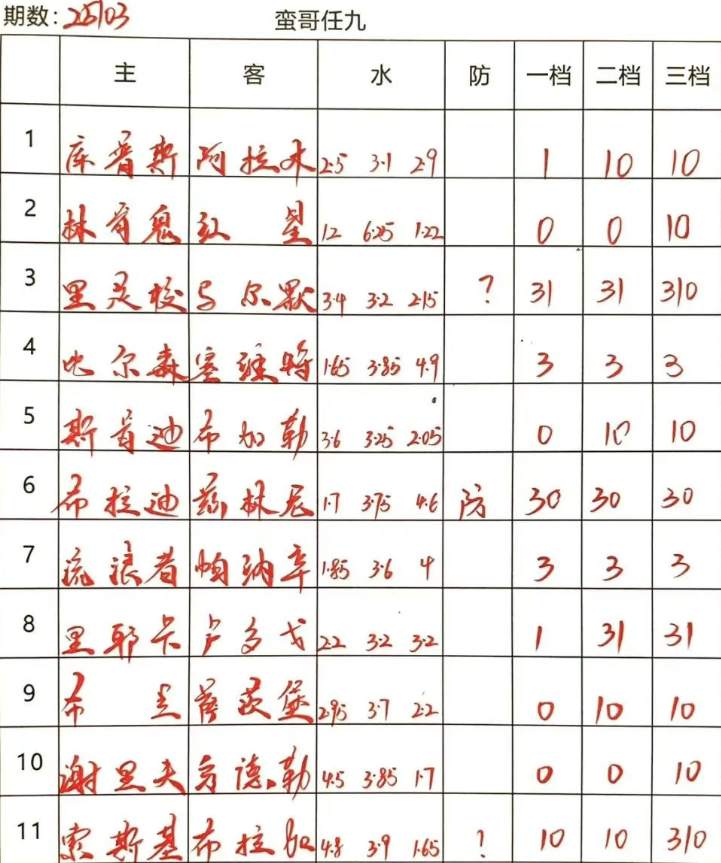 期数: 25103 蛮哥任九
主 客 水 防 一档 二档 三档
1 库普斯 阿拉木 2.5 3.1 2.9 1 10 10
2 林肯 红星 12 6.25 1.22 0 0 10
3 里灵校 马尔默 3.4 3.2 2.15 ? 31 31 310
4 比尔森 塞维特 1.65 3.85 4.9 3 3 3
5 斯肯迪 布加勒 3.6 3.25 2.05 0 10 10
6 布拉迪 兹林尼 1.7 3.75 4.6 防 30 30 30
7 流浪者 帕纳辛 1.85 3.6 4 3 3 3
8 里耶卡 卢多戈 2.2 3.2 3.2 1 31 31
9 布兰 萨茨堡 2.95 3.7 2.2 0 10 10
10 谢里夫 乌德勒 4.5 3.85 1.7 0 0 10
11 索斯基 布拉加 4.8 3.9 1.65 ? 10 10 310